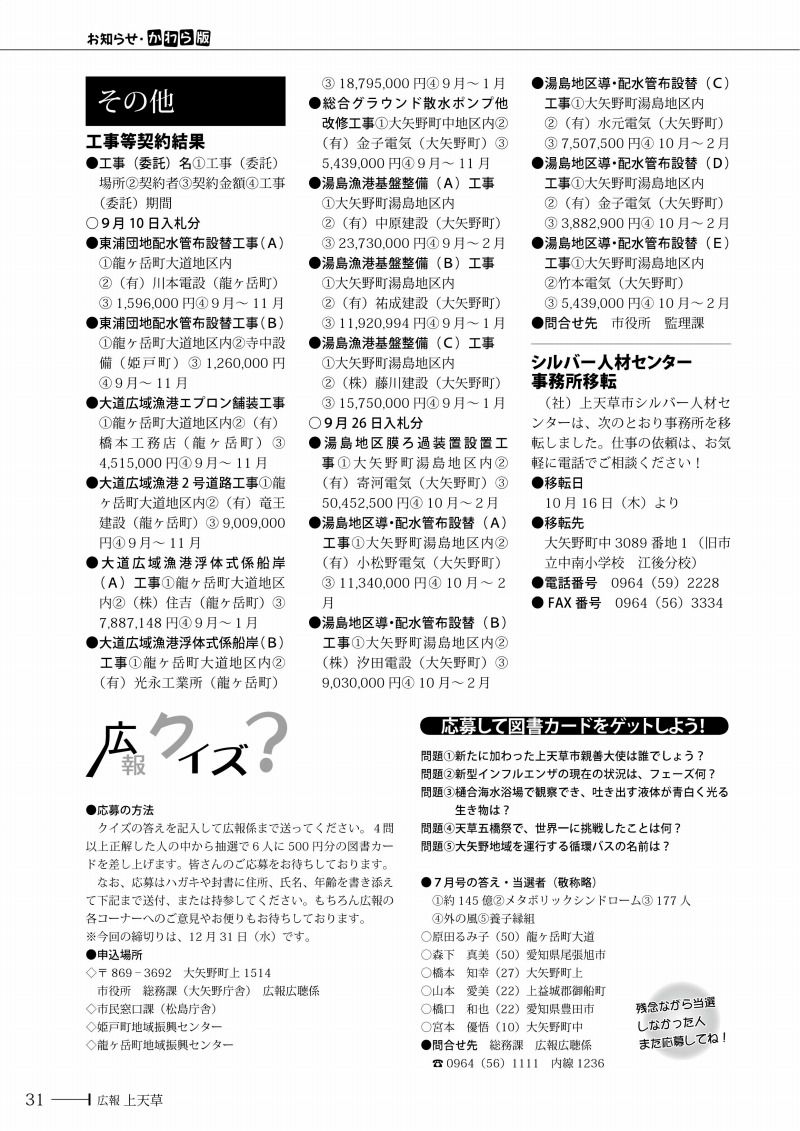 お知らせ・かわら版
その他
工事等契約結果
●工事（委託）名①工事（委託）
場所②契約者③契約金額④工事
（委託）期間
○９月 10 日入札分
●東浦団地配水管布設替工事（Ａ）
①龍ヶ岳町大道地区内
②（有）川本電設（龍ヶ岳町）
③ 1,596,000 円④９月～ 11 月
●東浦団地配水管布設替工事（Ｂ）
①龍ヶ岳町大道地区内②寺中設
備（姫戸町）③ 1,260,000 円
④９月～ 11 月
●大道広域漁港エプロン舗装工事
①龍ヶ岳町大道地区内②（有）
橋本工務店（龍ヶ岳町）③
4,515,000 円④９月～ 11 月
●大道広域漁港２号道路工事①龍
ヶ岳町大道地区内②（有）竜王
建設（龍ヶ岳町）③ 9,009,000
円④９月～ 11 月
●大道広域漁港浮体式係船岸
（Ａ）工事①龍ヶ岳町大道地区
内②（株）住吉（龍ヶ岳町）③
7,887,148 円④９月～１月
●大道広域漁港浮体式係船岸（Ｂ）
工事①龍ヶ岳町大道地区内②
（有）光永工業所（龍ヶ岳町）
③ 18,795,000 円④９月～１月
●総合グラウンド散水ポンプ他
改修工事①大矢野町中地区内②
（有）金子電気（大矢野町）③
5,439,000 円④９月～ 11 月
●湯島漁港基盤整備（Ａ）工事
①大矢野町湯島地区内
②（有）中原建設（大矢野町）
③ 23,730,000 円④９月～２月
●湯島漁港基盤整備（Ｂ）工事
①大矢野町湯島地区内
②（有）祐成建設（大矢野町）
③ 11,920,994 円④９月～１月
●湯島漁港基盤整備（Ｃ）工事
①大矢野町湯島地区内
②（株）藤川建設（大矢野町）
③ 15,750,000 円④９月～１月
○９月 26 日入札分
●湯島地区膜ろ過装置設置工
事①大矢野町湯島地区内②
（有）寄河電気（大矢野町）③
50,452,500 円④ 10 月～２月
●湯島地区導・配水管布設替（Ａ）
工事①大矢野町湯島地区内②
（有）小松野電気（大矢野町）
③ 11,340,000 円④ 10 月～２
月
●湯島地区導・配水管布設替（Ｂ）
工事①大矢野町湯島地区内②
（株）汐田電設（大矢野町）③
9,030,000 円④ 10 月～２月
●湯島地区導・配水管布設替（Ｃ）
工事①大矢野町湯島地区内
②（有）水元電気（大矢野町）
③ 7,507,500 円④ 10 月～２月
●湯島地区導・配水管布設替（Ｄ）
工事①大矢野町湯島地区内
②（有）金子電気（大矢野町）
③ 3,882,900 円④ 10 月～２月
●湯島地区導・配水管布設替（Ｅ）
工事①大矢野町湯島地区内
②竹本電気（大矢野町）
③ 5,439,000 円④ 10 月～２月
●問合せ先　市役所　監理課
シルバー人材センター
事務所移転
（社）上天草市シルバー人材セ
ンターは、次のとおり事務所を移
転しました。仕事の依頼は、お気
軽に電話でご相談ください！
●移転日
10 月 16 日（木）より
●移転先
大矢野町中 3089 番地１（旧市
立中南小学校　江後分校）
●電話番号　0964（59）2228
● FAX 番号　0964（56）3334
広報クイズ？
●応募の方法
クイズの答えを記入して広報係まで送ってください。４問
以上正解した人の中から抽選で６人に 500 円分の図書カー
ドを差し上げます。皆さんのご応募をお待ちしております。
なお、応募はハガキや封書に住所、氏名、年齢を書き添え
て下記まで送付、または持参してください。もちろん広報の
各コーナーへのご意見やお便りもお待ちしております。
※今回の締切りは、12 月 31 日（水）です。
●申込場所
◇〒 869－3692　大矢野町上 1514
市役所　総務課（大矢野庁舎）　広報広聴係
◇市民窓口課（松島庁舎）
◇姫戸町地域振興センター
◇龍ヶ岳町地域振興センター
応募して図書カードをゲットしよう！
問題①新たに加わった上天草市親善大使は誰でしょう？
問題②新型インフルエンザの現在の状況は、フェーズ何？
問題③樋合海水浴場で観察でき、吐き出す液体が青白く光る
生き物は？
問題④天草五橋祭で、世界一に挑戦したことは何？
問題⑤大矢野地域を運行する循環バスの名前は？
●７月号の答え・当選者（敬称略）
①約 145 億②メタボリックシンドローム③ 177 人
④外の風⑤養子縁組
○原田るみ子（50）龍ヶ岳町大道
○森下　真美（50）愛知県尾張旭市
○橋本　知幸（27）大矢野町上
○山本　愛美（22）上益城郡御船町
○橋口　和也（22）愛知県豊田市
○宮本　優悟（10）大矢野町中
●問合せ先　総務課　広報広聴係
☎ 0964（56）1111　内線 1236
残念ながら当選
しなかった人
また応募してね！
31 広報 上天草